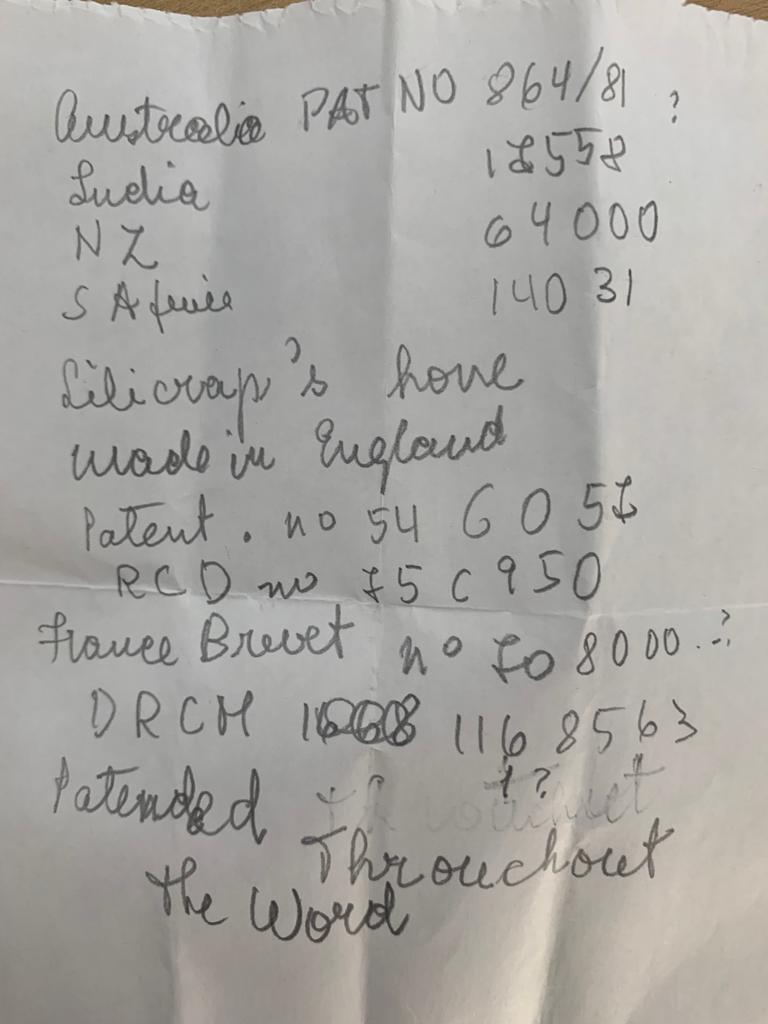 Australia PAT NO 864/81 ?
India 17558
NZ 64000
S Africa 14031
Lilicrap's hone
made in England
Patent. no 546057
RCD no 75C950
France Brevet no 708000..?
DRCM 1168563
Patended 1?
Throuchout
the Word